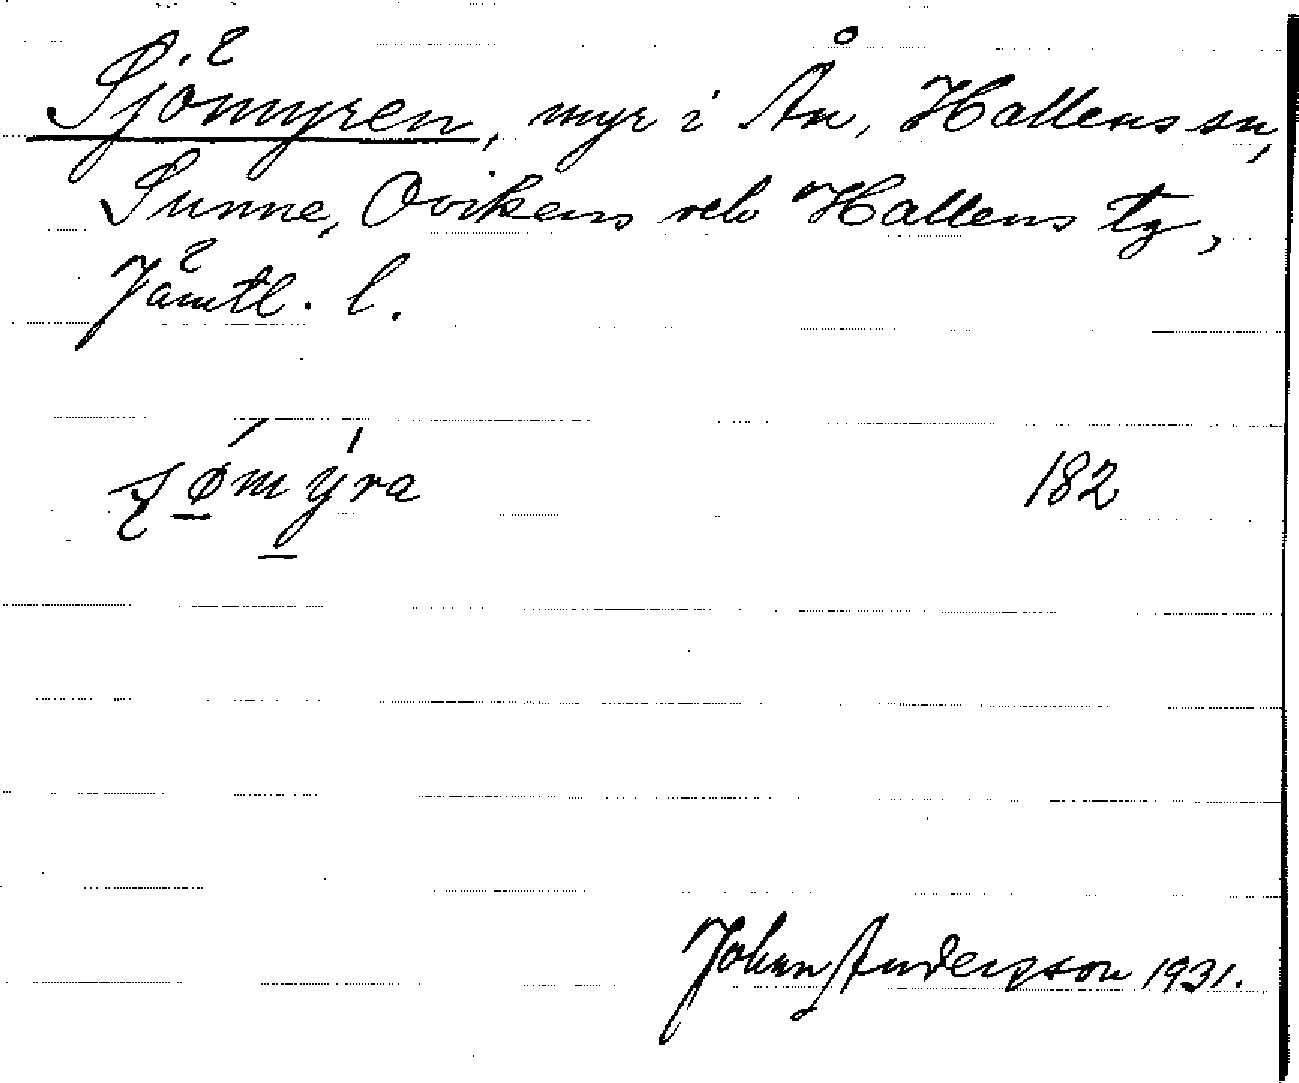 Sjömyren, myr i Ån, Hallens sn,
Sunne, Ovikens och Hallens tg,
Jämtl. l.
ʂǿ̱mý̱ra 182
Johan Andersson 1931.